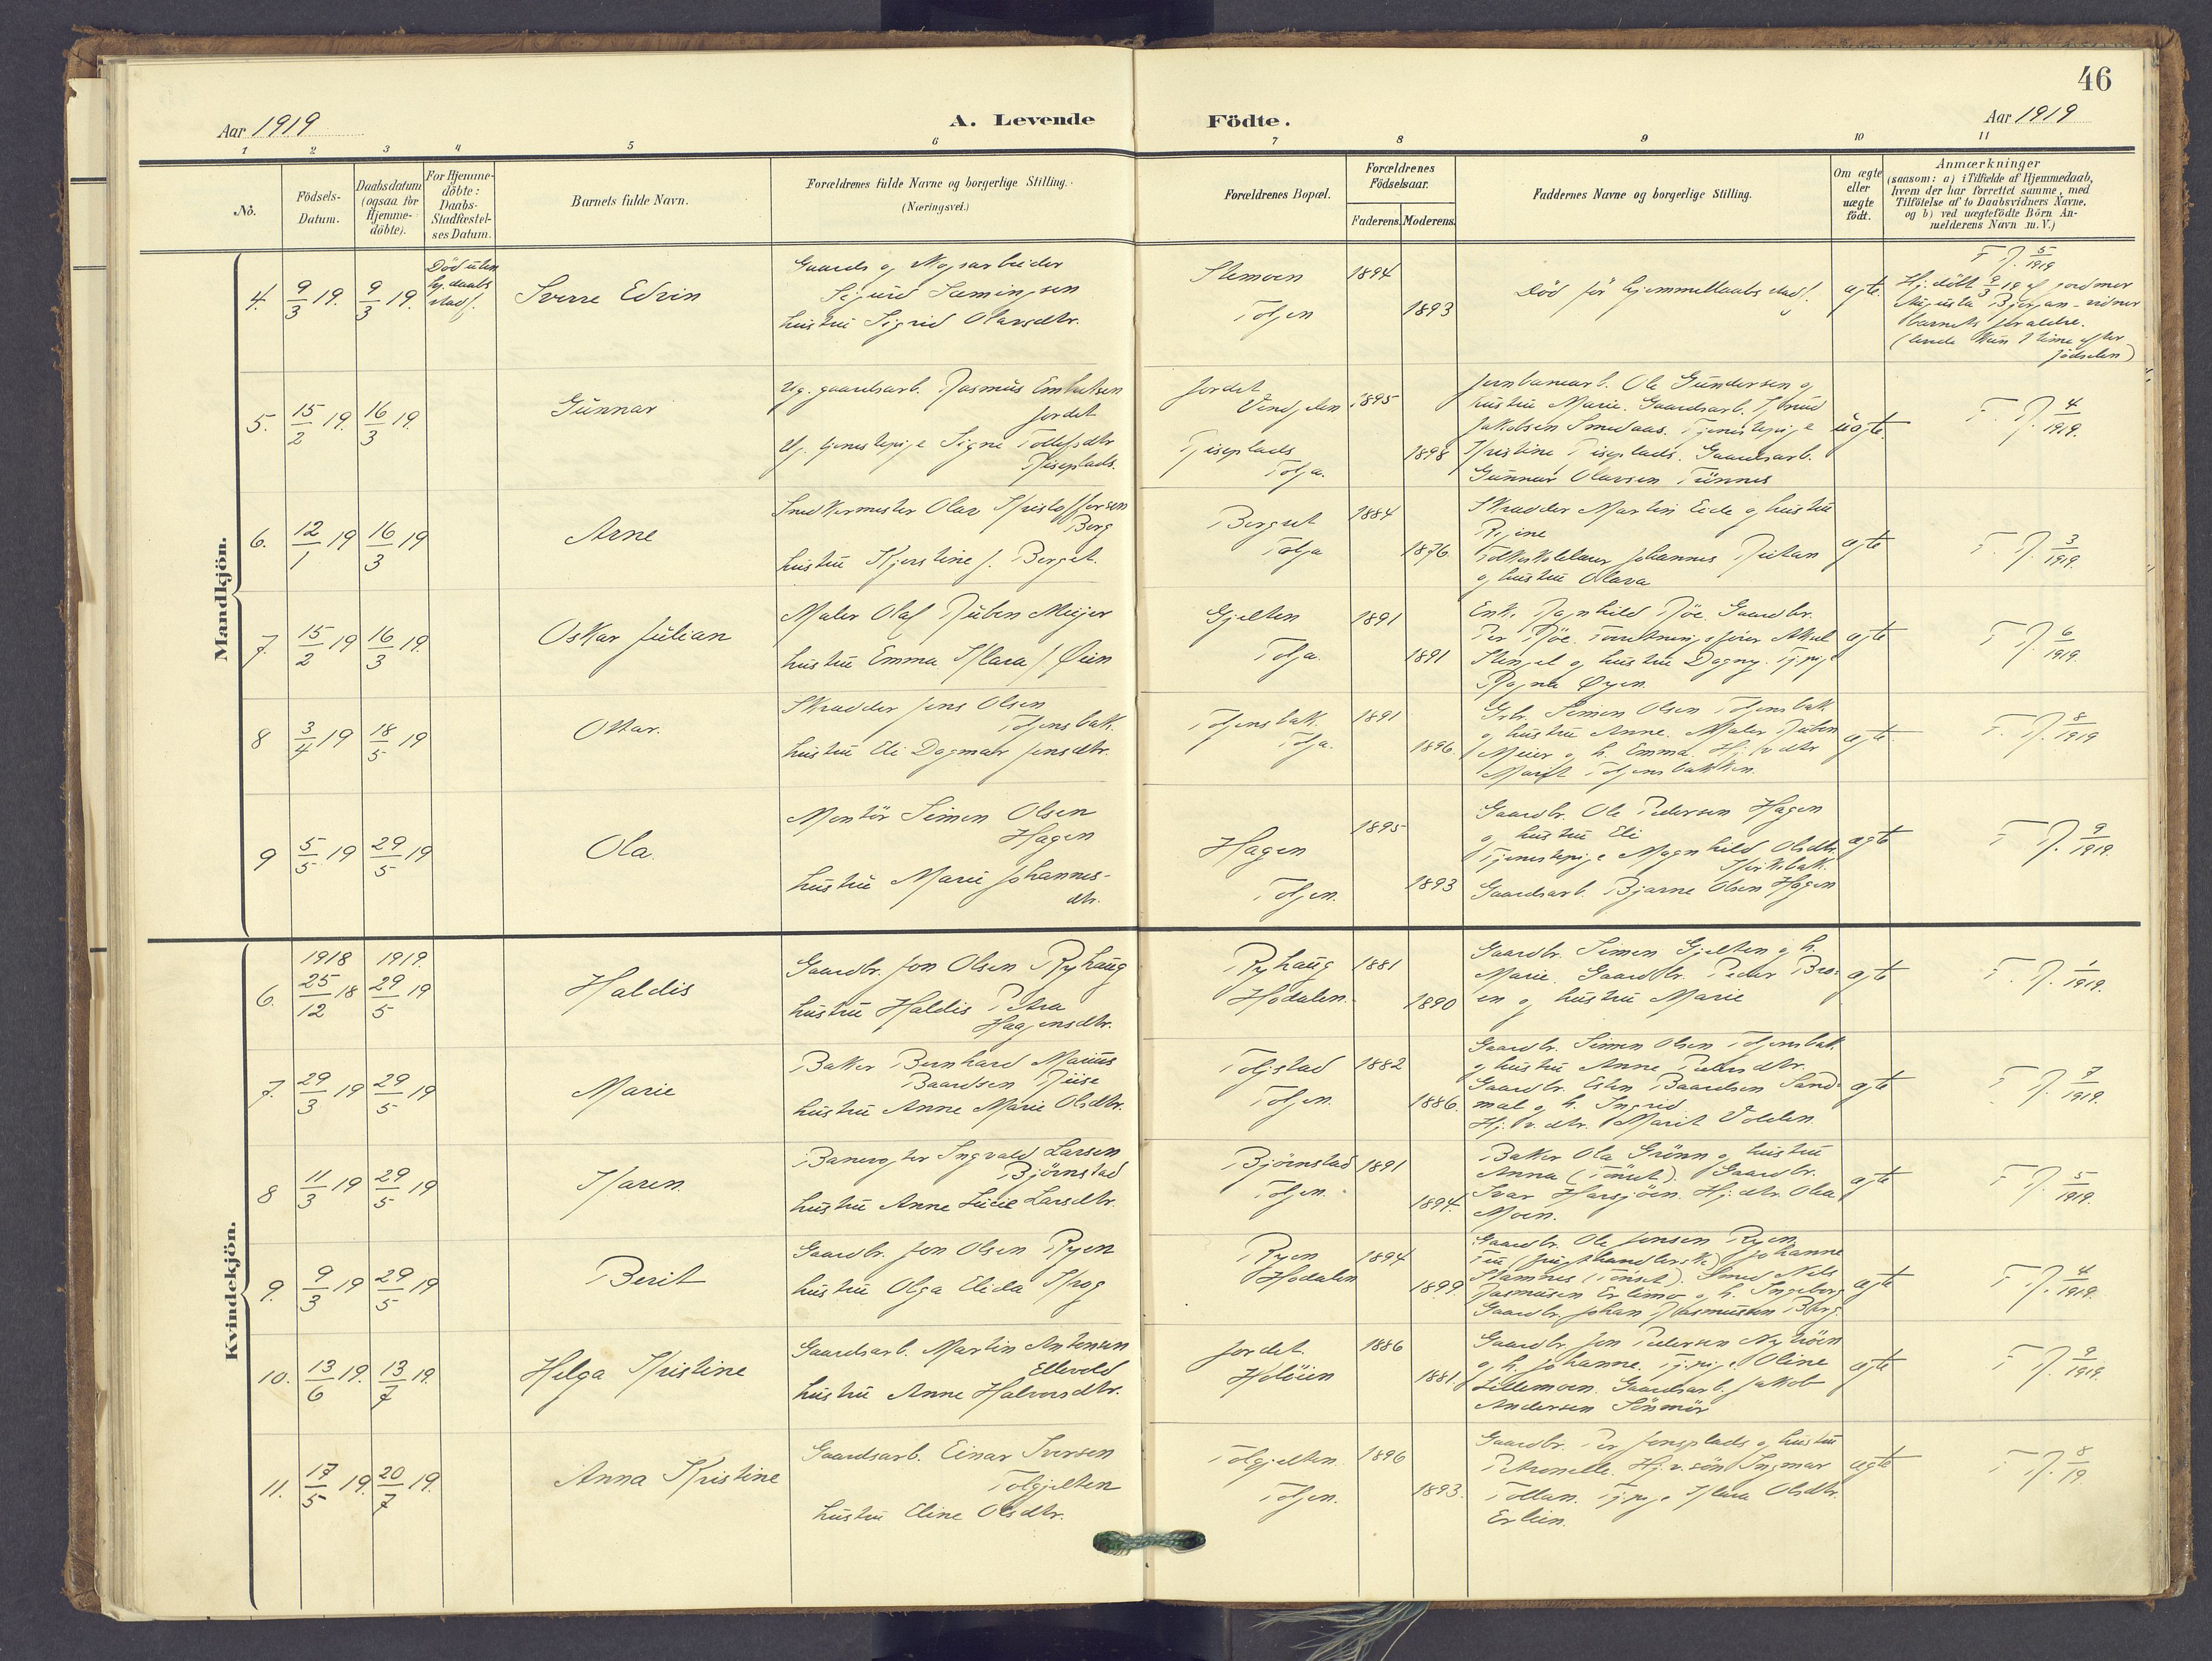 46
Aar 1919
A. Levende Födte.
Aar 1919
1 2 3 4 5 6 7 8 9 10 11
No.
Födsels-Datum.
Daabsdatum (ogsaa for Hjemme-döbte).
For Hjemme-döbte: Daabs-Stadfæstel-ses Datum.
Barnets fulde Navn.
Forældrenes fulde Navne og borgerlige Stilling.
(Næringsvei.)
Forældrenes Bopæl.
Forældrenes Födselsaar.
Faderens. Moderens.
Faddernes Navne og borgerlige Stilling.
Om ægte eller uægte födt.
Anmærkninger
(saasom: a) i Tilfælde af Hjemmedaab,
hvem der har forrettet samme, med
Tilföielse af to Daabsvidners Navne.
og b) ved uægtefödte Börn An-
melderens Navn m. V.)
Mandkjön.
4. 9/3 19. 9/3 19.
Död uten
hj. daabs
stadf.
Sverre Edvin
Gaards og
Sigurd Semingsen
hustru Sigrid Olavsdtr.
Tolgen
1894
1893
Död för hjemmedaabs stadf.
ægte.
F. R. 5/1919
Hj. döbt 9/3 19 af jordmor
barnets forældre.
(levde kun 1 time efter
födselen)
5. 15/2 19. 16/3 19.
Gunnar
Ug. gaardsarb. Rasmus Embretsen
Jordet
Ug. tjenestepige Signe Tollefsdtr
Riseplads.
Jordet
Vingelen
Riseplads
Tolga.
1895
1898
Jernbanearb. Ole Gundersen og
hustru Marie. Gaardsarb.
Jakobsen Smedaas. Tjenestepige
Kristine Riseplads. Gaardsarb.
Gunnar Olavsen Tünnes
uægte.
F. R. 4/1919.
6. 12/1 19 16/3 19
Arne
Snedkermester Olav Kristoffersen
Berg
hustru Kjerstine f. Berget.
Berget
Tolga
1884
1876.
Skrædder Martin Eide og hustru
Regine
Folkeskolelærer Johannes
og hustru Olava
ægte
F. R. 3/1919.
7. 15/2 19 16/3 19.
Oskar Julian
Maler Olaf Ruben Meijer
hustru Emma Klara f. Øien
Gjelten
Tolga.
1891
1891
Enke Ragnhild Röe. Gaardbr.
Per Röe. Forretningsförer
Stengel og hustru Dagny. Tj.pige
Ragna Øyen.
ægte
F. R. 6/1919.
8 3/4 19 18/5 19
Otkar.
Skrædder Jens Olsen
Tolgensbak.
hustru Eli Dagmar Jensdtr.
Tolgensbak.
Tolga.
1891
1896.
Grbr. Simen Olsen Tolgensbak
og hustru Anne. Maler Ruben
Meier og h. Emma. Hj.v. dtr
Marit Tolgensbakken.
ægte
F. R. 8/1919
9 5/5 19 29/5 19
Ola.
Montör Simen Olsen
Hagen
hustru Marie Johannes-
dtr.
Hagen
Tolgen.
1895
1893
Gaardbr. Ole Pedersen Hagen
og hustru Eli
Tjenestepige Magnhild Olsdtr.
Gaardsarb. Bjarne Olsen Hagen
ægte
F. R. 9/1919.
Kvindekjön.
1918 1919.
6. 25/12 18 29/5 19
Haldis
Gaardbr. Jon Olsen Ryhaug
hustru Haldis Petra
Hagensdtr.
Ryhaug
Hodalen.
1881
1890
Gaardbr. Simen Gjelten og h.
Marie. Gaardbr. Peder Bro-
en og hustru Marie
ægte
F. R. 1/1919.
7. 29/3 19 29/5 19
Marie
Baker Bernhard Marius
Baardsen Riise
hustru Anne Marie Olsdtr.
Tolgstad
Tolgen.
1882
1886.
Gaardbr. Simen Olsen Tolgensbak
og hustru Anne Pedersdtr.
Gaardbr. Esten Baardsen Sand-
mal og h. Ingrid
Hj. v. dtr. Marit Volden.
ægte
F. R. 7/1919.
8 11/3 19 29/5 19
Karen.
Banevogter Ingvald Larsen
Björnstad
hustru Anne Lucie Larsdtr.
Björnstad
Tolgen.
1891
1894.
Baker Ola Grönn og hustru
Anna (Tönset). Gaardbr.
Ivar Harsjöen. Hj. dtr. Olea
Moen.
ægte
F. R. 5/1919.
9. 9/3 19 29/5 19
Berit
Gaardbr. Jon Olsen Ryen
hustru Olga Elida Krog
Ryen
Hodalen
1894
1899.
Gaardbr. Ole Jonsen Ryen.
Johanne
Stamnes (Tönset). Smed Nils
Rasmussen Erlimo og h. Ingeborg
Gaardbr. Johan Rasmussen Berg.
ægte
F. R. 4/1919.
10. 13/6 19. 13/7 19.
Helga Kristine
Gaardsarb. Martin Antonsen
Ellevold
hustru Anne Halvorsdtr.
Jordet
Holöien
1886
1881.
Gaardbr. Jon Pedersen Nytröen
og h. Johanne. Tj.pige Oline
Lillemoen. Gaardsarb. Jakob
Andersen Sönmör
ægte
F. R. 9/1919.
11. 17/5 19. 20/7 19.
Anna Kristine
Gaardsarb. Einar Iversen
Tolgjelten
hustru Eline Olsdtr.
Tolgjelten.
Tolgen.
1896
1893.
Gaardbr. Per Jensplads og hustru
Petronelle. Hj.v. sön Ingmar
Tollan. Tj.pige Klara Olsdtr.
Erlien.
ægte
F. R. 8/19